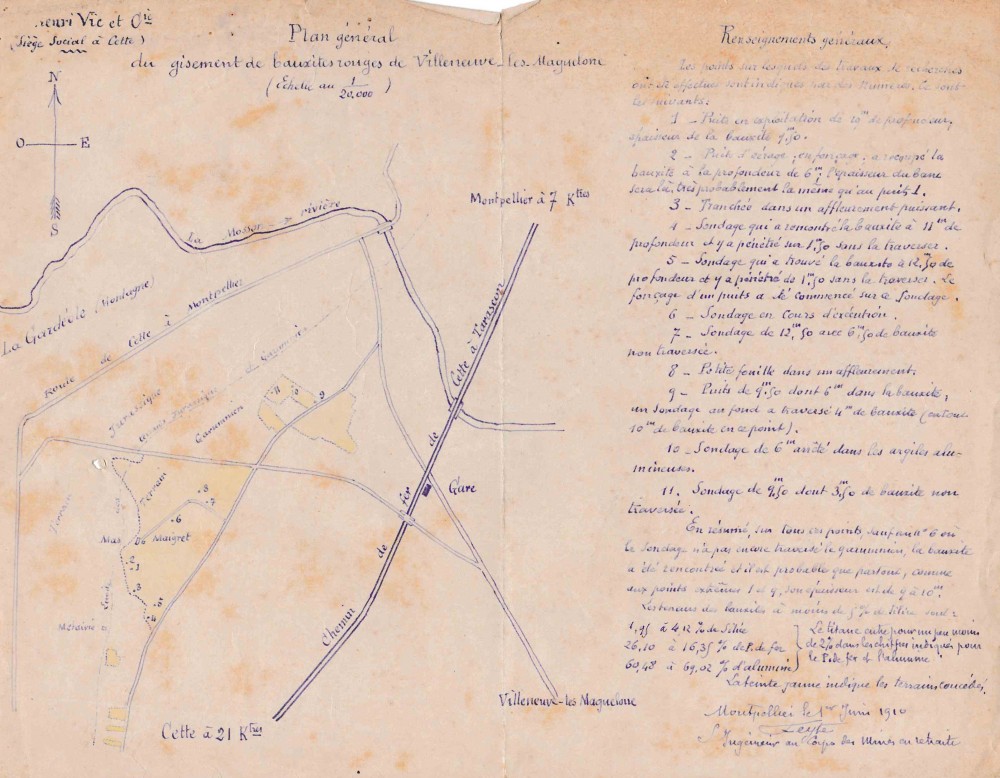 Henri Vic et Cie
(Siège Social à Cette)
Plan général
du gisement de bauxites rouges de Villeneuve-les-Maguelone
(Echelle au 1/20,000)
N
O E
S
Montpellier à 7 Ktres
La Mosson rivière
La Gardéole (Montagne)
Route de Cette à Montpellier
Chemin de fer de Cette à Tarascon
Jurassique
Terrain
Garumnien
11
9
Gare
Terrain
8
7
6
Mas Maigret
2
1
3
4
Limite
Villeneuve-les Maguelone
Cette à 21 Ktres
Renseignements généraux.
Les points sur lesquels des travaux de recherches
ont été effectués sont indiqués par des numéros. Ce sont
les suivants:
1 - Puits en exploitation de 19m de profondeur,
épaisseur de la bauxite 9m50.
2 - Puits d'aérage, en fonçage, a recoupé la
bauxite à la profondeur de 6m; l'épaisseur du banc
sera là, très probablement la même qu'au puits 1.
3 - Tranchée dans un affleurement puissant.
4 - Sondage qui a rencontré la bauxite à 11m de
profondeur et y a pénétré sur 1m50 sans la traverser.
5 - Sondage qui a trouvé la bauxite à 12m50 de
profondeur et y a pénétré de 1m50 sans la traverser. Le
fonçage d'un puits a été commencé sur ce sondage.
6 - Sondage en cours d'exécution.
7 - Sondage de 12m,50 avec 6m,50 de bauxite
non traversée.
8 - Petite fouille dans un affleurement.
9 - Puits de 9m50 dont 6m dans la bauxite,
un sondage au fond a traversé 4m de bauxite (en tout
10m de bauxite en ce point).
10 - Sondage de 6m arrêté dans les argiles alu-
mineuses.
11. Sondage de 9m,50 dont 3m,50 de bauxite non
traversée.
En résumé, sur tous ces points, sauf au n° 6 où
le sondage n'a pas encore traversé le garumnien, la bauxite
a été rencontrée et il est probable que partout, comme
aux points extrêmes 1 et 9, son épaisseur est de 9 à 10m.
Les teneurs des bauxites à moins de 5% de silice sont:
1,95 à 4,12 % de Silice
26,10 à 16,35 % de P. de fer
60,48 à 69,02 % d'alumine
Le titane entre pour un peu moins
de 2% dans les chiffres indiqués pour
le P. de fer et l'alumine
La teinte jaune indique les terrains concédés.
Montpellier le 1er Juin 1910
Ingénieur au Corps des Mines en retraite